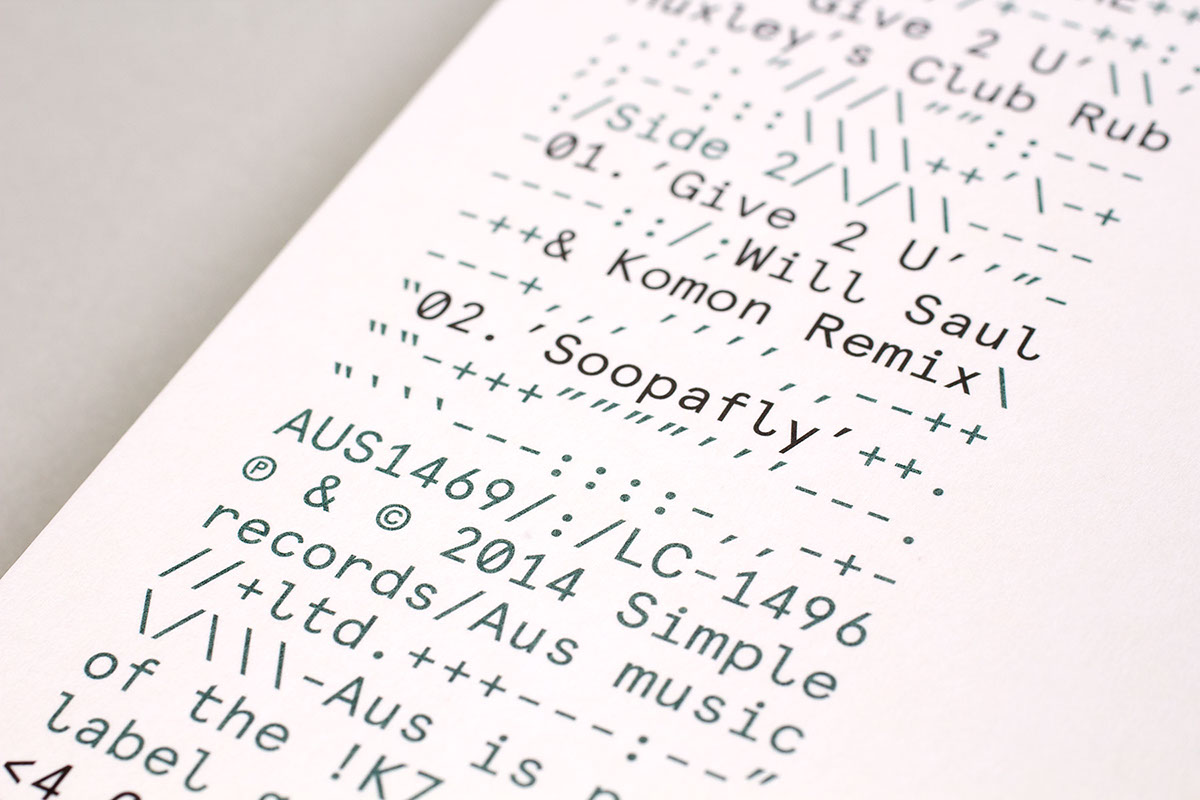 //+--++:;
Give 2 U’\\’
Huxley’s Club Rub
’.:;.″///\″″::---
;;--:::\\\\++′\-+
:/Side 2/\/\\----
-01. ’Give 2 U’′″-
----::/;Will Saul
-++& Komon Remix\
---+,,,′′,,′,--++
"02. ’Soopafly’++.
""-+++″″″″′,,---.
"'''---::::-,,-+-
AUS1469/:/LC-1496
℗ & © 2014 Simple
records/Aus music
//+ltd.+++---:--″
\/\\\-Aus is
of the !K7
label
<4